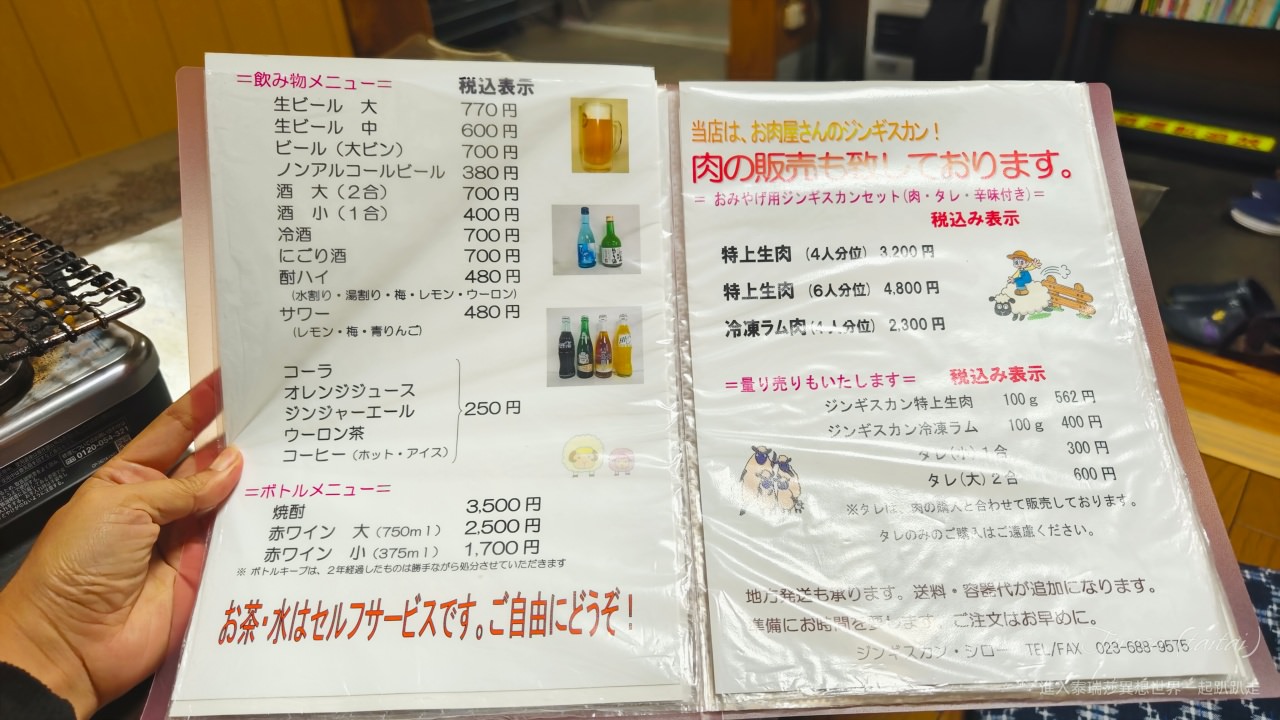 =飲み物メニュー= 税込表示
生ビール 大 770円
生ビール 中 600円
ビール(大ビン) 700円
ノンアルコールビール 380円
酒 大(2合) 700円
酒 小(1合) 400円
冷酒 700円
にごり酒 700円
酎ハイ 480円
(水割り・湯割り・梅・レモン・ウーロン)
サワー 480円
(レモン・梅・青りんご)
コーラ
オレンジジュース
ジンジャーエール 250円
ウーロン茶
コーヒー(ホット・アイス)
=ボトルメニュー=
焼酎 3,500円
赤ワイン 大(750ml) 2,500円
赤ワイン 小(375ml) 1,700円
※ ボトルキープは、2年経過したものは勝手ながら処分させていただきます
お茶・水はセルフサービスです。ご自由にどうぞ!
当店は、お肉屋さんのジンギスカン!
肉の販売も致しております。
= おみやげ用ジンギスカンセット(肉・タレ・辛味付き)=
税込み表示
特上生肉 (4人分位) 3,200円
特上生肉 (6人分位) 4,800円
冷凍ラム肉(4人分位) 2,300円
=量り売りもいたします= 税込み表示
ジンギスカン特上生肉 100g 562円
ジンギスカン冷凍ラム 100g 400円
タレ(小)1合 300円
タレ(大)2合 600円
※タレは、肉の購入と合わせて販売しております。
タレのみのご購入はご遠慮ください。
地方発送も承ります。送料・容器代が追加になります。
準備にお時間を要します。ご注文はお早めに。
ジンギスカン・シロー TEL/FAX 023-688-9575
0120-054-321
進入泰瑞莎異想世界一起趴趴走